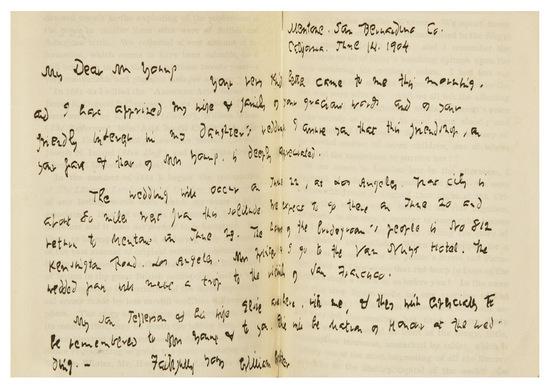 Mentone. San Bernardino Co.
California. June 14. 1904
My Dear Mr Young
Your very kind letter came to me this morning.
and I have apprized my wife & family of your gracious words and of your
friendly interest in my Daughter's wedding. I assure you that this friendship, on
your part & that of Mrs Young. is deeply appreciated.
The wedding will occur on June 22, at Los Angeles. That city is
about 80 miles West from this solitude. We expect to go there on June 20 and
return to Mentone on June 23. The home of the bridegroom's people is No 812
Kensington Road. Los Angeles. Mrs Winter & I go to the Van Nuys Hotel. The
wedded pair will make a trip to the vicinity of San Francisco.
My son Jefferson & his wife Elsie are here, with me, & they wish especially to
be remembered to Mrs Young & to you. Elsie will be Matron of Honour at the wed-
ding. — Faithfully yours William Winter